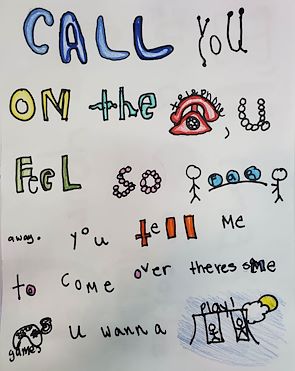 CALL YOU
ON the telephone, u
FEEL SO FAR
away. you tell me
to come over theres some
games u wanna play!